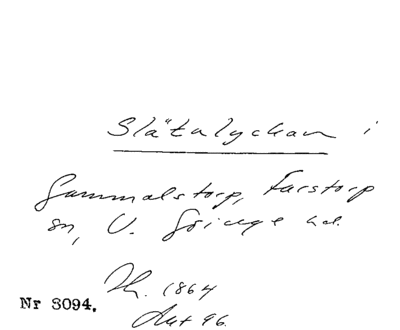 Slätalyckan i
Gammalstorp, Farstorp
sn, V. Göinge hd.
Th. 1864
Nr 3094.
Ant 96.